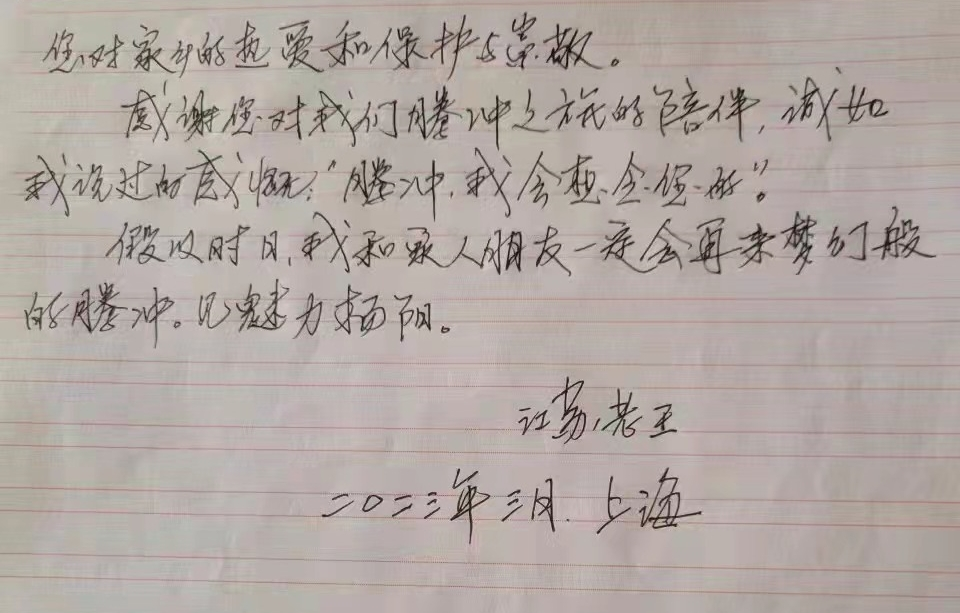 您对家乡的热爱和保护与崇敬。
感谢您对我们腾冲之旅的陪伴，诚如
我说过的感慨：“腾冲，我会想念您的”。
假以时日，我和家人朋友一定会再来梦幻般
的腾冲。见魅力杨阳。
江苏，老王
二〇二三年三月．上海